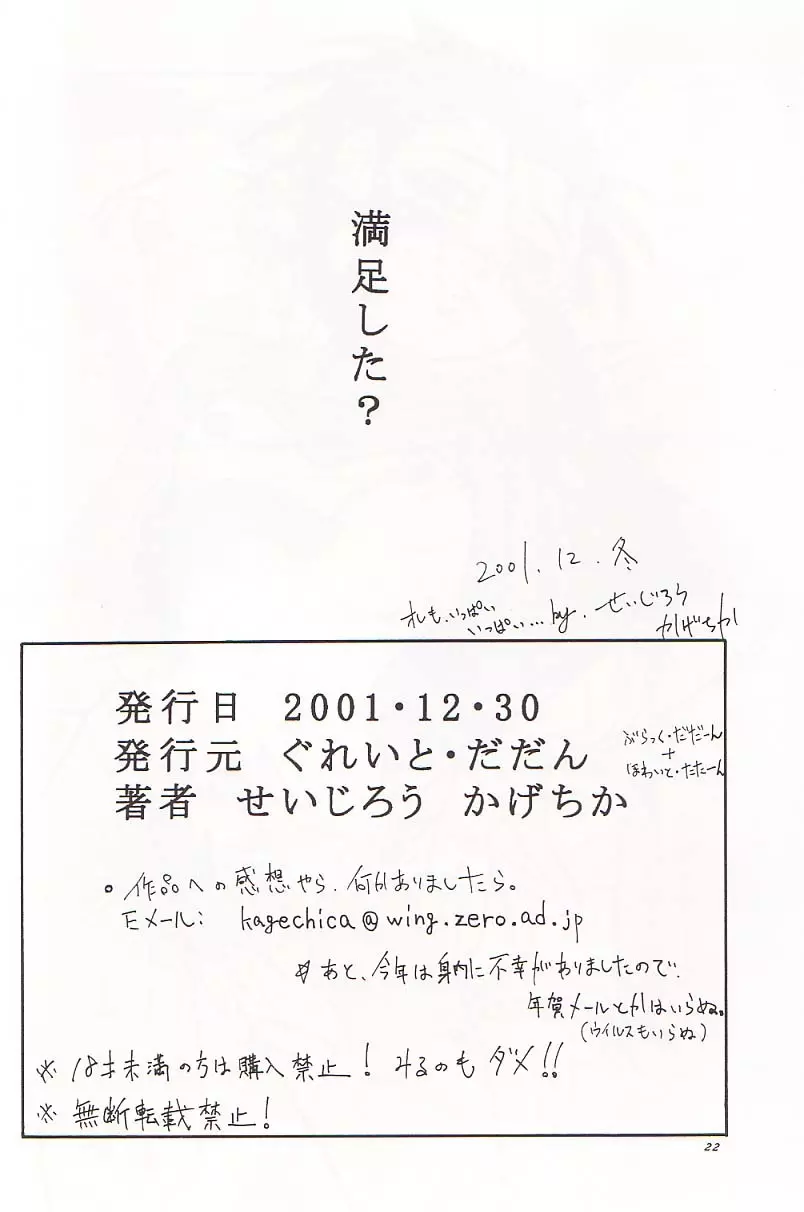 満足した?
2001.12.冬
オレも、いっぱい
いっぱい…by.せいじろう
かげちか
発行日 2001・12・30
発行元 ぐれいと・だだん
ぶらっく・だだーん
+
ほわいと・たたーん
著者 せいじろう かげちか
。作品への感想やら、何かありましたら。
Eメール: kagechica@wing.zero.ad.jp
あと、今年は身内に不幸がありましたので、
年賀メールとかはいらぬ。
(ウイルスもいらぬ)
※ 18才未満の方は購入禁止! みるのもダメ!!
※ 無断転載禁止!
22